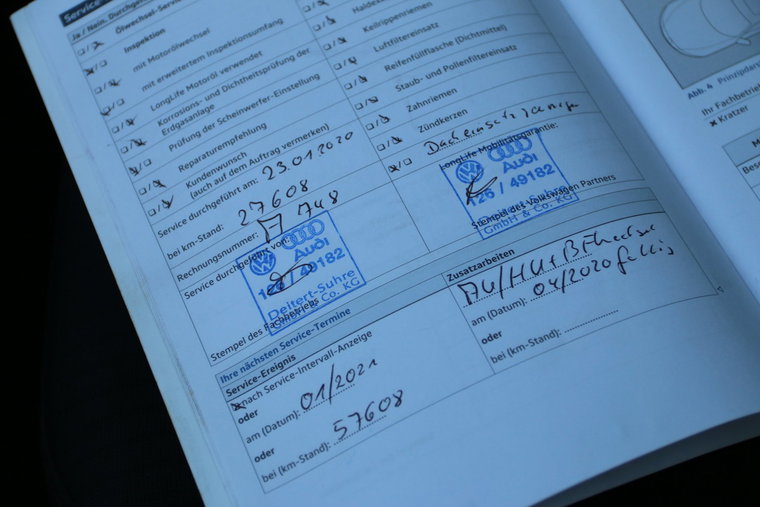 Service
Ja / Nein, Durchgeführt
Ölwechsel-Service
Inspektion
mit Motorölwechsel
mit erweitertem Inspektionsumfang
LongLife Motoröl verwendet
Korrosions- und Dichtheitsprüfung der
Erdgasanlage
Prüfung der Scheinwerfer-Einstellung
Reparaturempfehlung
Kundenwunsch
(auch auf dem Auftrag vermerken)
Service durchgeführt am: 23.01.2020
bei km-Stand: 27608
Rechnungsnummer:
Service durchgeführt von:
Audi
126 / 49182
Deitert-Suhre
GmbH & Co. KG
Stempel des Fachbetriebs
Keilrippenriemen
Luftfiltereinsatz
Reifenfüllflasche (Dichtmittel)
Staub- und Pollenfiltereinsatz
Zahnriemen
Zündkerzen
LongLife Mobilitätsgarantie:
Audi
126 / 49182
Deitert-Suhre
GmbH & Co. KG
Stempel des Volkswagen Partners
Ihre nächsten Service-Termine
Service-Ereignis
nach Service-Intervall-Anzeige
oder
am (Datum): 01/2021
oder
bei (km-Stand): 57608
Zusatzarbeiten
am (Datum): 04/2020
oder
bei (km-Stand):
Abb. 4
Ihr Fachbetrieb
× Kratzer